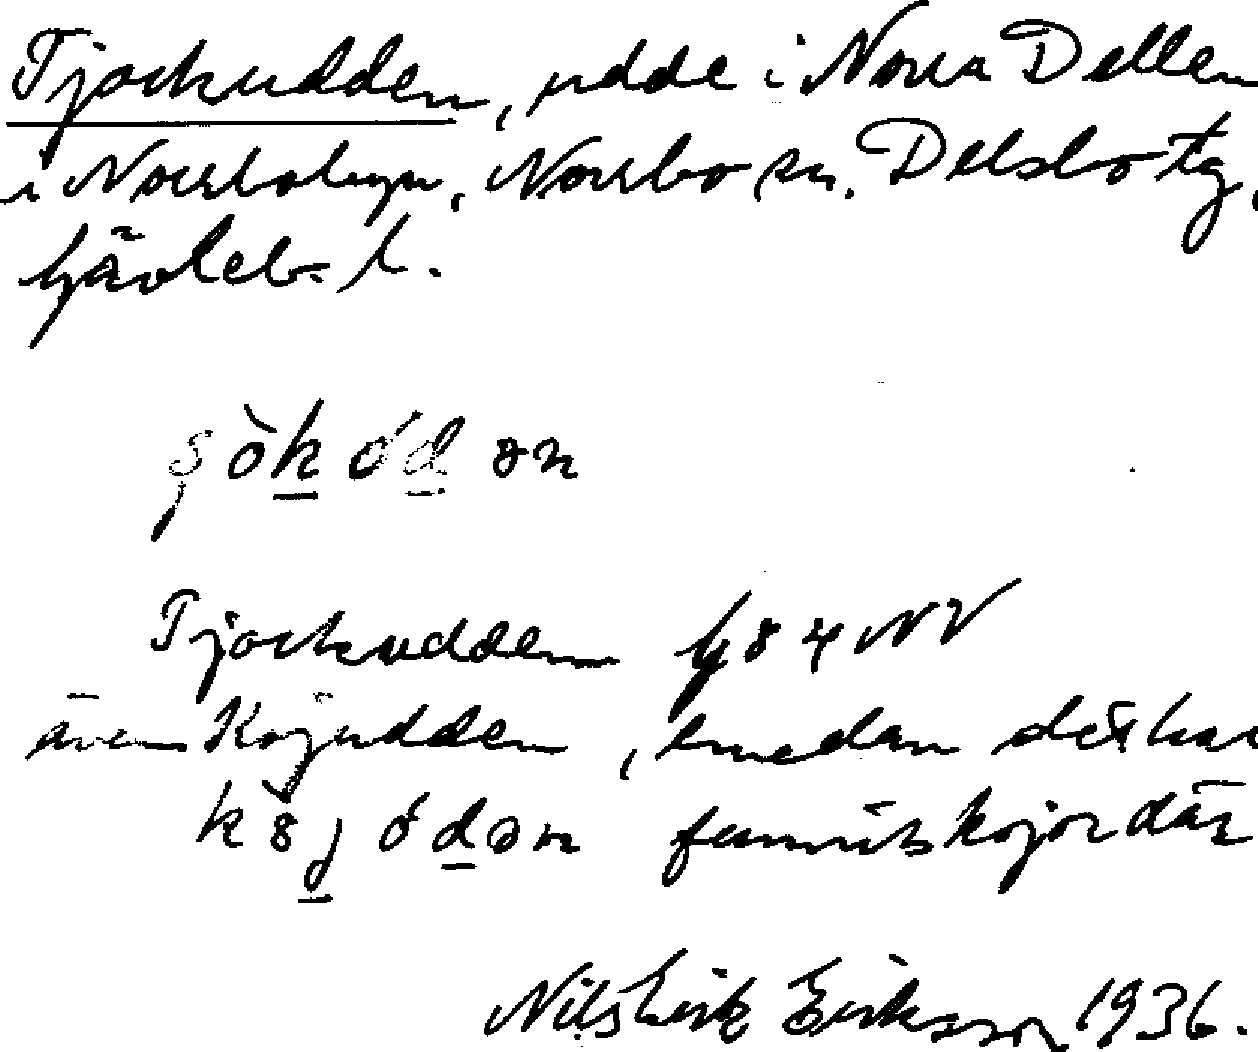 Tjockudden, udde i Norra Dellen
i Norrbobyn, Norrbo sn. Delsbo tg,
Gävleb. l.
Tjockudden G84 NV
även Kojudden, emedan det har
funnits kojor där
Nils Erik Eriksson 1936.